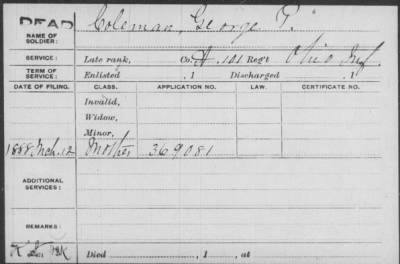 DEAD
NAME OF SOLDIER: Coleman, George P.
SERVICE: Late rank, Co. A, 101 Reg't Ohio Inf.
TERM OF SERVICE: Enlisted , 1 Discharged , 1
DATE OF FILING. CLASS. APPLICATION NO. LAW. CERTIFICATE NO.
Invalid,
Widow,
Minor,
1888 Mch. 12 Mother 369081
ADDITIONAL SERVICES:
REMARKS:
Died , 1 , at